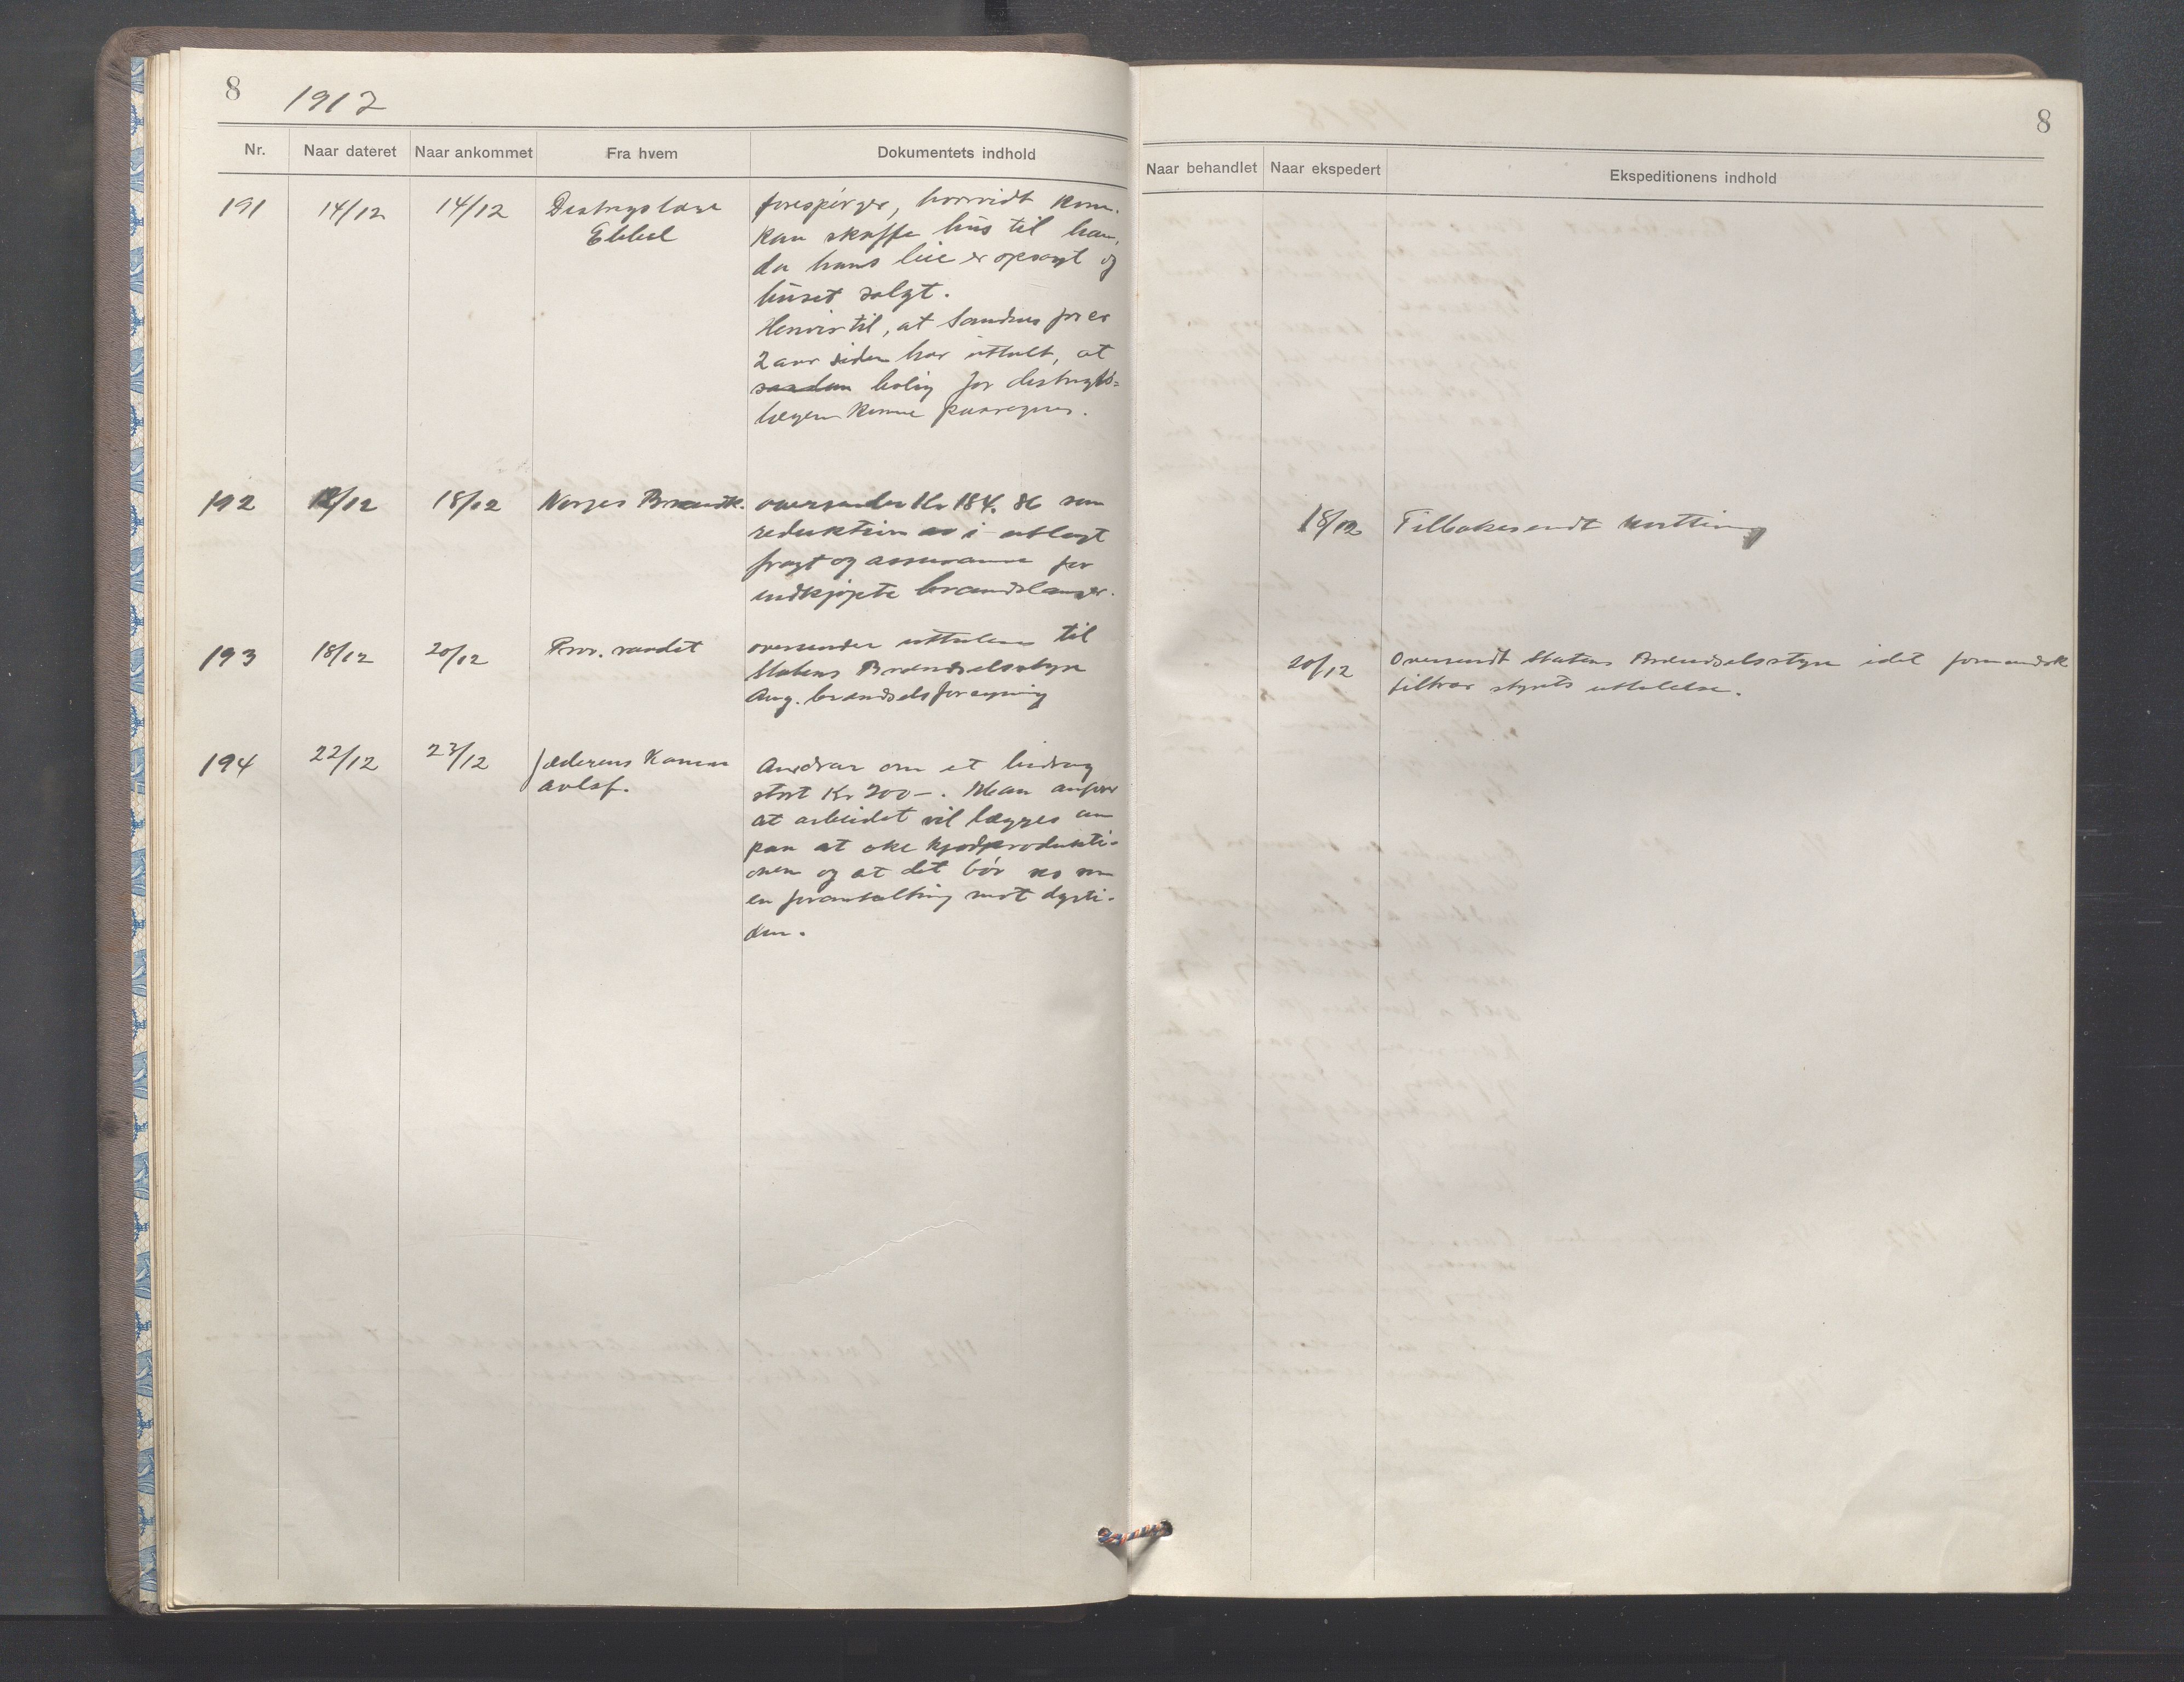 8 1917
Nr. Naar dateret Naar ankommet Fra hvem Dokumentets indhold
191 14/12 14/12 Distrigslæge
Ebbel
forespörger, hvorvidt kom.
kan skaffe hus til ham,
da hans leie er opsagt og
huset solgt.
Henviser til, at Sandnes for ca
2 aar siden har uttalt, at
saadan bolig for distrigts-
lægen kunne paaregnes.
192 12/12 18/12 Norges Brandk.
oversender Kr 184.86 som
reduktion av i utlagt
fragt og assurance for
indkjøpte brandslanger.
193 18/12 20/12 Prov. raadet
oversender uttalelse til
Statens Brændselsstyre
Ang. brændselsforsyning
194 22/12 23/12 Jæderens Kanin
avlsf.
Andrar om et bidrag
stort Kr 200-. Man anfører
at arbeidet vil lægges an
paa at øke kjødprodukti-
onen og at det bör ses som
en foranstaltning mot dyrti-
den.
8
Naar behandlet Naar ekspedert Ekspeditionens indhold
18/12 Tilbakesendt kvittering
20/12 Oversendt Statens Brændselsstyre idet formandsk
tiltrær styrets uttalelse.